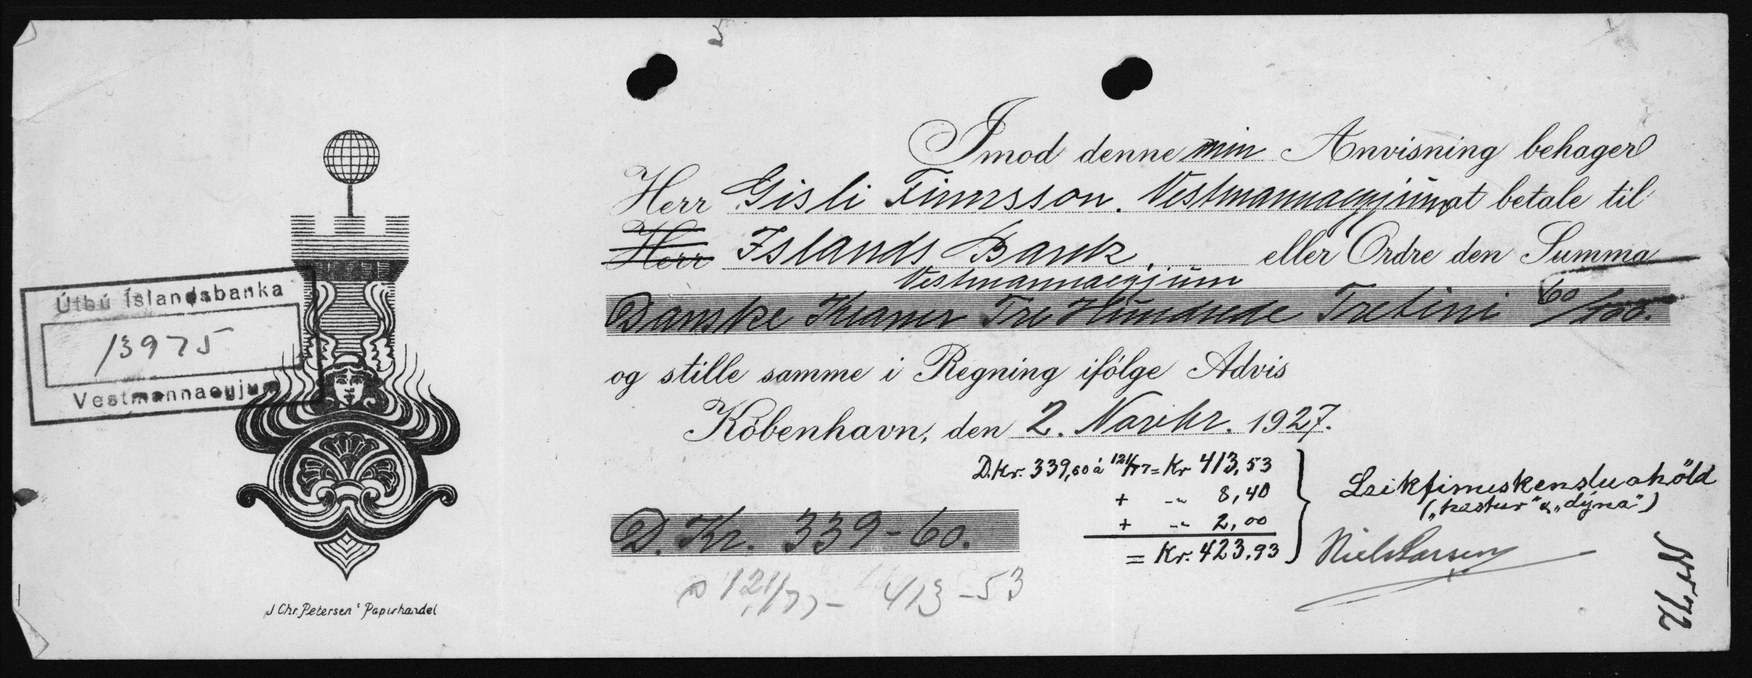 Imod denne min Anvisning behager
Herr Gisli Finnsson. Vestmannaeyjum at betale til
Herr Islands Bank, eller Ordre den Summa
Vestmannaeyjum
Danske Kroner Tre Hundrede Tretini 60/100.
og stille samme i Regning ifólge Advis
Kóbenhavn, den 2. Novbr. 1927.
D.Kr. 339,60 à 121/77 = Kr 413,53
+ -„- 8,40
+ -„- 2,00
= Kr. 423,93
Leikfimiskensluahöld
(„hestur“ & „dýna“)
D. Kr. 339-60.
Niels Larsen
à 121/77- 413-53
Nr 72
Útbú Íslandsbanka
13975
Vestmannaeyjum
J Chr. Petersens Papirhandel